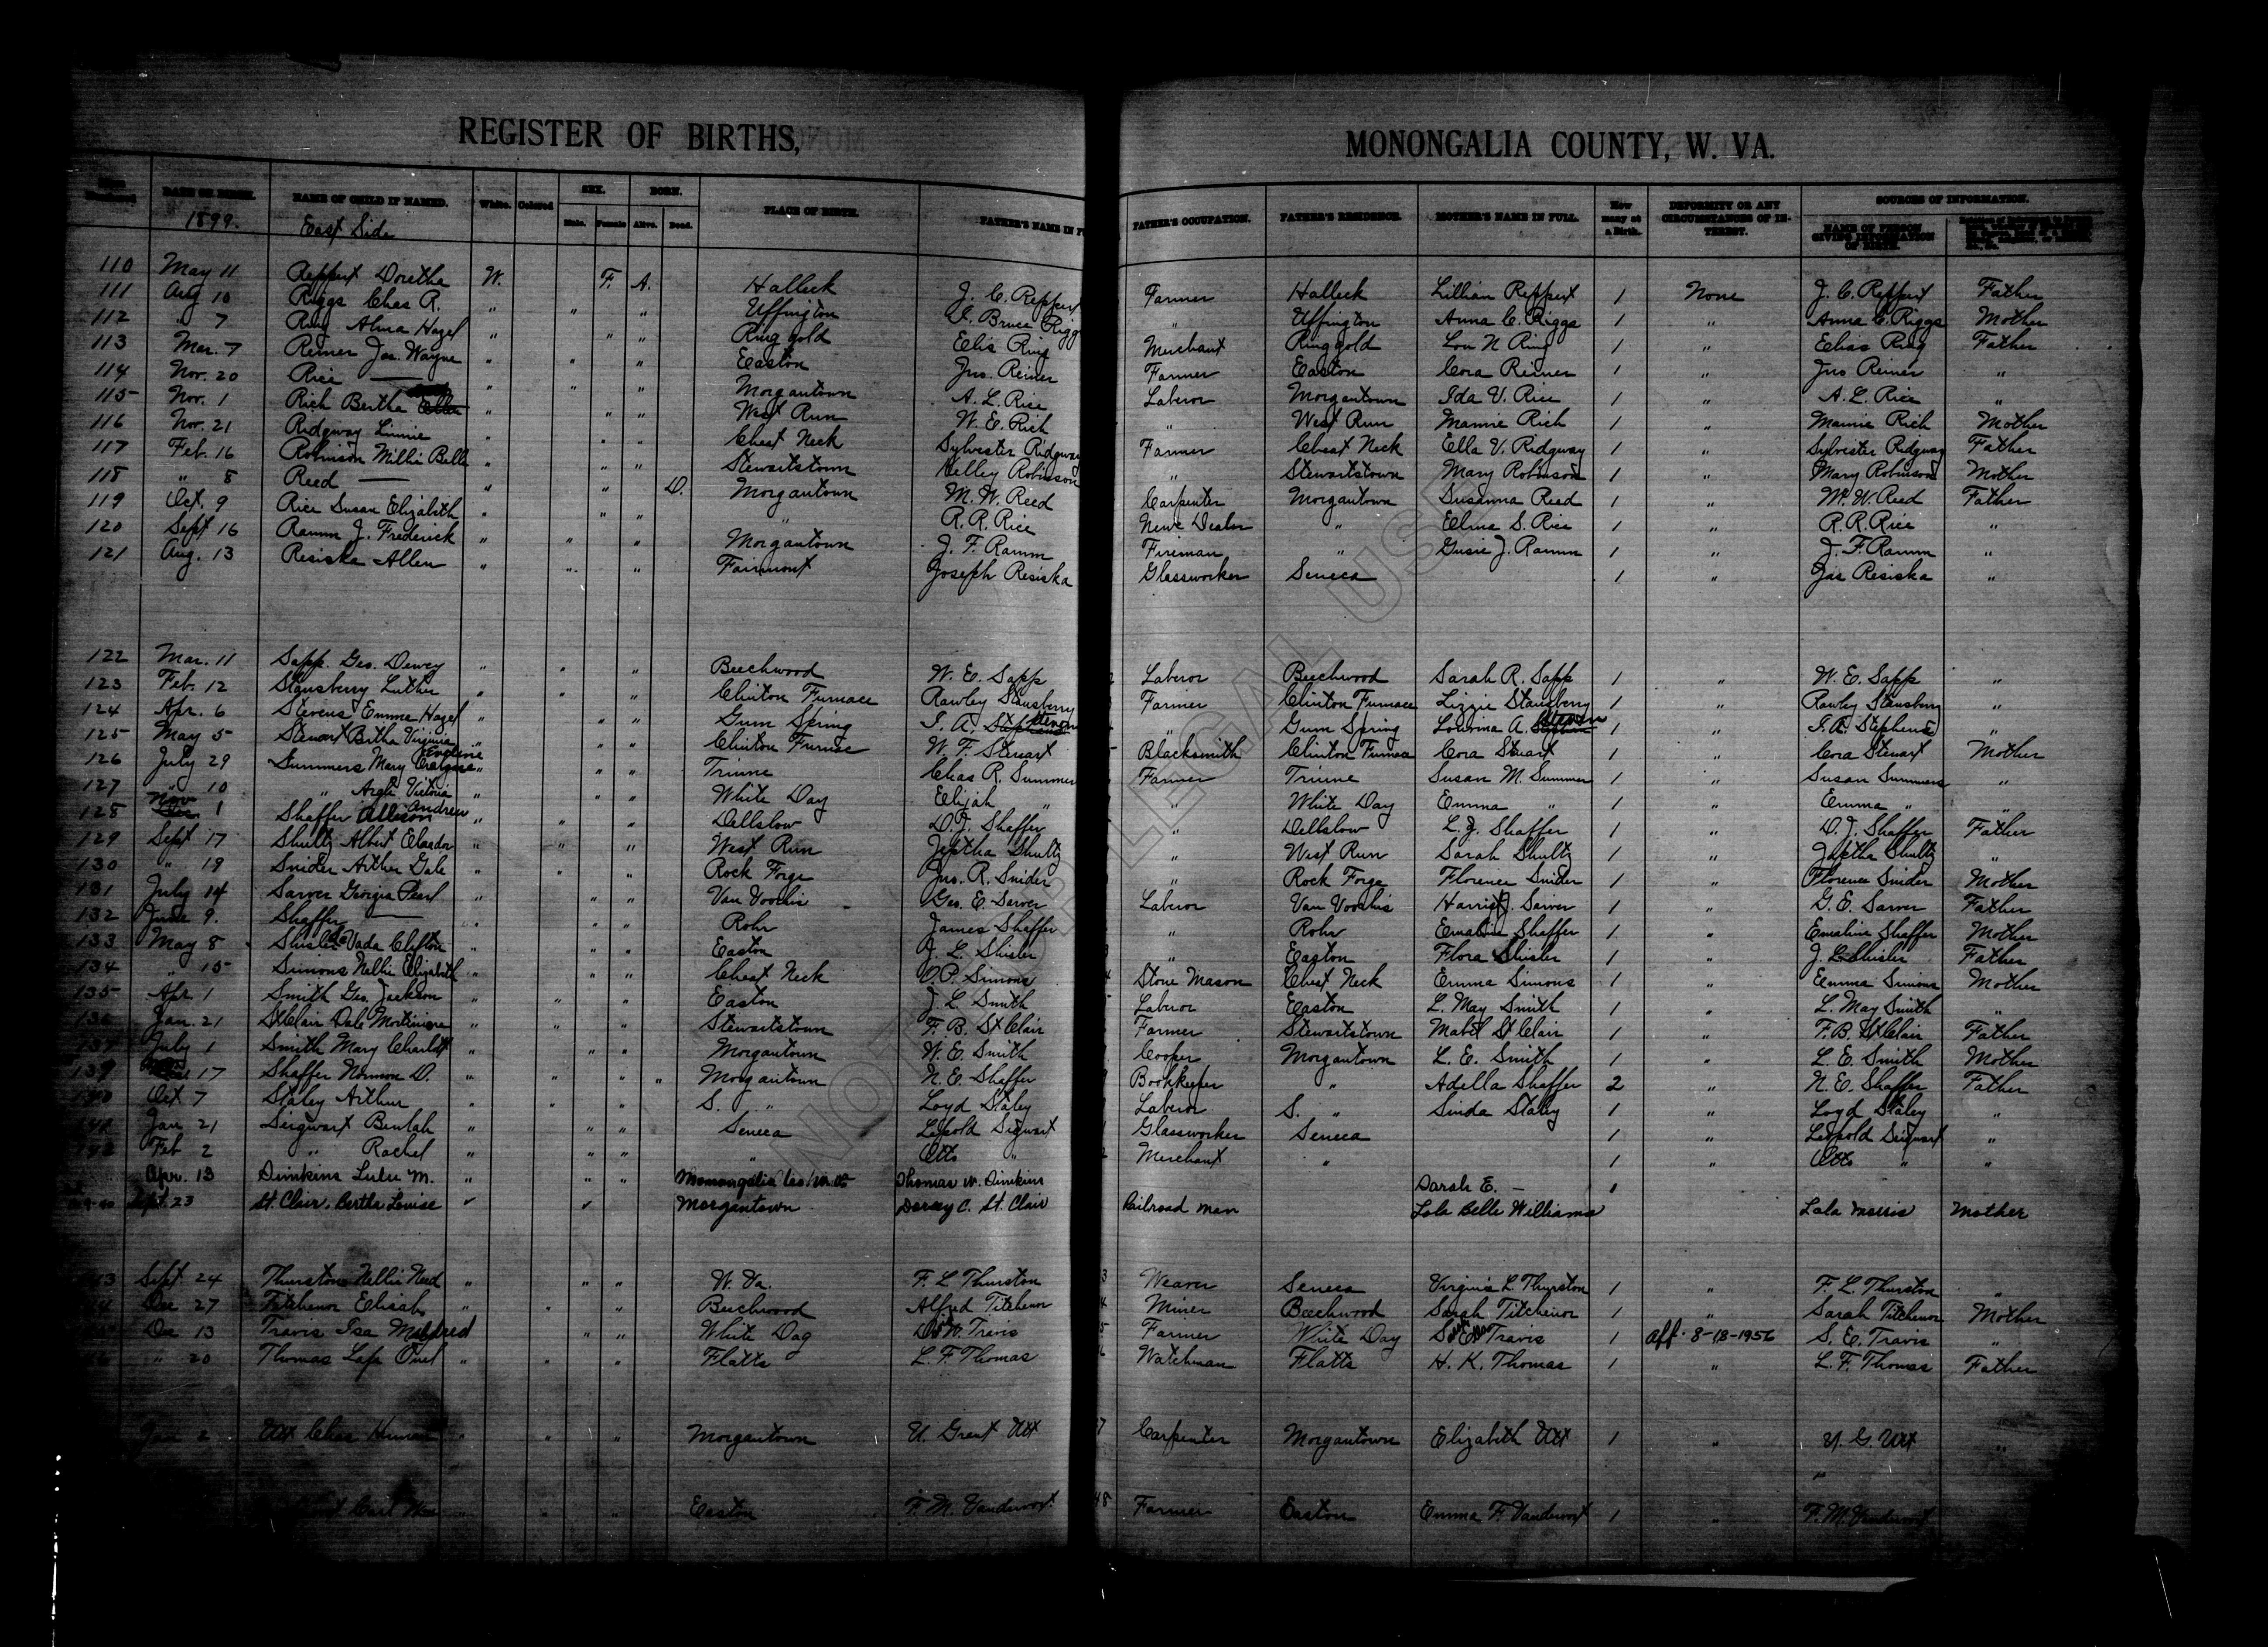 REGISTER OF BIRTHS, MONONGALIA COUNTY, W. VA.
DATE OF BIRTH. NAME OF CHILD IF NAMED. White. Colored SEX. Male. Female BORN. Alive. Dead. PLACE OF BIRTH. FATHER'S NAME IN F FATHER'S OCCUPATION. FATHER'S RESIDENCE. MOTHER'S NAME IN FULL. How many at a Birth. DEFORMITY OR ANY CIRCUMSTANCES OF INTEREST. SOURCES OF INFORMATION. NAME OF PERSON GIVING INFORMATION OF BIRTH.
1899. East Side
110 May 11 Reppert Doretha W. F. A. Halleck J. C. Reppert Farmer Halleck Lillian Reppert 1 None J. C. Reppert Father
111 Aug 10 Riggs Chas R. " " " Uffington Bruce Riggs " Uffington Anna C. Riggs 1 " Anna C. Riggs Mother
112 " 7 Ring Alma Hazel " " " Ringgold Elis Ring Merchant Ringgold Lou N Ring 1 " Elias Ring Father
113 Mar. 7 Reiner Jas. Wayne " " " Easton Jno. Reiner Farmer Easton Cora Reiner 1 " Jno Reiner "
114 Nov. 20 Rice — " " " Morgantown A. L. Rice Laberor Morgantown Ida V. Rice 1 " A. L. Rice "
115 Nov. 1 Rich Bertha Ella " " " West Run W. E. Rich " West Run Mamie Rich 1 " Mamie Rich Mother
116 Nov. 21 Ridgway Linnie " " " Cheat Neck Sylvester Ridgway Farmer Cheat Neck Ella V. Ridgway 1 " Sylvester Ridgway Father
117 Feb. 16 Robinson Millie Belle " " " Stewartstown Kelley Robinson " Stewartstown Mary Robinson 1 " Mary Robinson Mother
118 " 8 Reed — " " D. Morgantown M. W. Reed Carpenter Morgantown Susanna Reed 1 " M. W. Reed Father
119 Oct. 9 Rice Susan Elizabeth " " " " R. R. Rice News Dealer " Elma S. Rice 1 " R. R. Rice "
120 Sept 16 Ramm J. Frederick " " " Morgantown J. F. Ramm Fireman " Gusie J. Ramm 1 " J. F. Ramm "
121 Aug. 13 Resiska Allen " " " Fairmont Joseph Resiska Glassworker Seneca 1 " Jas Resiska "
122 Mar. 11 Sapp. Geo. Dewey " " " Beechwood W. E. Sapp Laberor Beechwood Sarah R. Sapp 1 " W. E. Sapp "
123 Feb. 12 Stansberry Luther " " " Clinton Furnace Rawley Stansberry Farmer Clinton Furnace Lizzie Stansberry 1 " Rawley Stansberry "
124 Apr. 6 Stevens Emma Hazel " " " Gum Spring S. A. " Gum Spring Lourina A. 1 " S. A. Stephens "
125 May 5 Stewart Bertha Virginia " " " Clinton Furnace W. F. Stewart Blacksmith Clinton Furnace Cora Stewart 1 " Cora Stewart Mother
126 July 29 Summers Mary Evaline " " " Triune Chas R. Summers Farmer Triune Susan M. Summers 1 " Susan Summers "
127 " 10 " Argle Victoria " " " White Day Elijah " " White Day Emma " 1 " Emma " "
128 Nov 1 Shaffer Allison Andrew " " " Dellslow D. J. Shaffer " Dellslow L. J. Shaffer 1 " D. J. Shaffer Father
129 Sept 17 Shultz Albert " " " West Run Jeptha Shultz " West Run Sarah Shultz 1 " Jeptha Shultz "
130 " 19 Snider Arther Dale " " " Rock Forge Jno. R. Snider " Rock Forge Florence Snider 1 " Florence Snider Mother
131 July 14 Sarver Georgia Pearl " " " Van Voorhis Geo. E. Sarver Laberor Van Voorhis Harriet J. Sarver 1 " G. E. Sarver Father
132 June 9. Shaffer — " " " Rohr James Shaffer " Rohr Emaline Shaffer 1 " Emaline Shaffer Mother
133 May 8 Shisler Vada Clifton " " " Easton J. L. Shisler " Easton Flora Shisler 1 " J. L. Shisler Father
134 " 15 Simons Nellie Elizabeth " " " Cheat Neck O. P. Simons Stone Mason Cheat Neck Emma Simons 1 " Emma Simons Mother
135 Apr. 1 Smith Geo. Jackson " " " Easton J. L. Smith Laberor Easton L. May Smith 1 " L. May Smith "
136 Jan. 21 St Clair Dale Mortimore " " " Stewartstown F. B. St Clair Farmer Stewartstown Mabel St Clair 1 " F. B. St Clair Father
137 July 1 Smith Mary Charlott " " " Morgantown W. E. Smith Cooper Morgantown L. E. Smith 1 " L. E. Smith Mother
139 17 Shaffer Norman D. " " " " Morgantown N. E. Shaffer Bookkeeper " Adella Shaffer 2 " N. E. Shaffer Father
140 Oct 7 Staley Arthur " " " S. " Loyd Staley Laberor S. " Sinda Staley 1 " Loyd Staley "
141 Jan 21 Seigwart Beulah " " " Seneca Lepold Seigwart Glassworker Seneca 1 " Leopold Seigwart "
142 Feb 2 " Rachel " " " " Otto " Merchant " 1 " Otto " "
Apr. 13 Simpkins Lulu M. " " " Monongalia Co. W. Va. Thomas W. Simpkins Sarah E. — 1
Sept. 23 St. Clair, Bertha Louise ✓ ✓ Morgantown Dorsey C. St. Clair Railroad man Lola Belle Williams Lola Mother
143 Sept 24 Thurston Nellie " " " W. Va. F. L. Thurston Weaver Seneca Virginia L Thurston 1 " F. L. Thurston "
Dec 27 Titchenor Elisah " " " Beechwood Alfred Titchenor Miner Beechwood Sarah Titchenor 1 " Sarah Titchenor Mother
Dec 13 Travis Isa Mildred " " White Day Travis Farmer White Day Travis 1 Aff. 8-18-1956 S. E. Travis "
" 20 Thomas Lafe " " " Flatts L. F. Thomas Watchman Flatts H. K. Thomas 1 " L. F. Thomas Father
Jan 2 Utt Chas " " " Morgantown U. Grant Utt Carpenter Morgantown Elizabeth Utt 1 " U. G. Utt "
Carl " " " Easton F. M. Vandervort Farmer Easton Emma F. Vandervort 1 " F. M. Vandervort